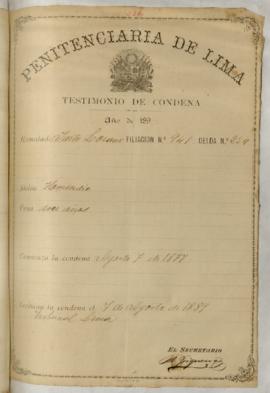 PENITENCIARIA DE LIMA
TESTIMONIO DE CONDENA
Año de 189
Rematado Justo FILIACION N.º 948 CELDA N.º
Delito Homicidio
Pena doce años
Comienza la condena Agosto 7 de 1877
Termina la condena el 7 de Agosto de 1889
Tribunal Lima
EL SECRETARIO